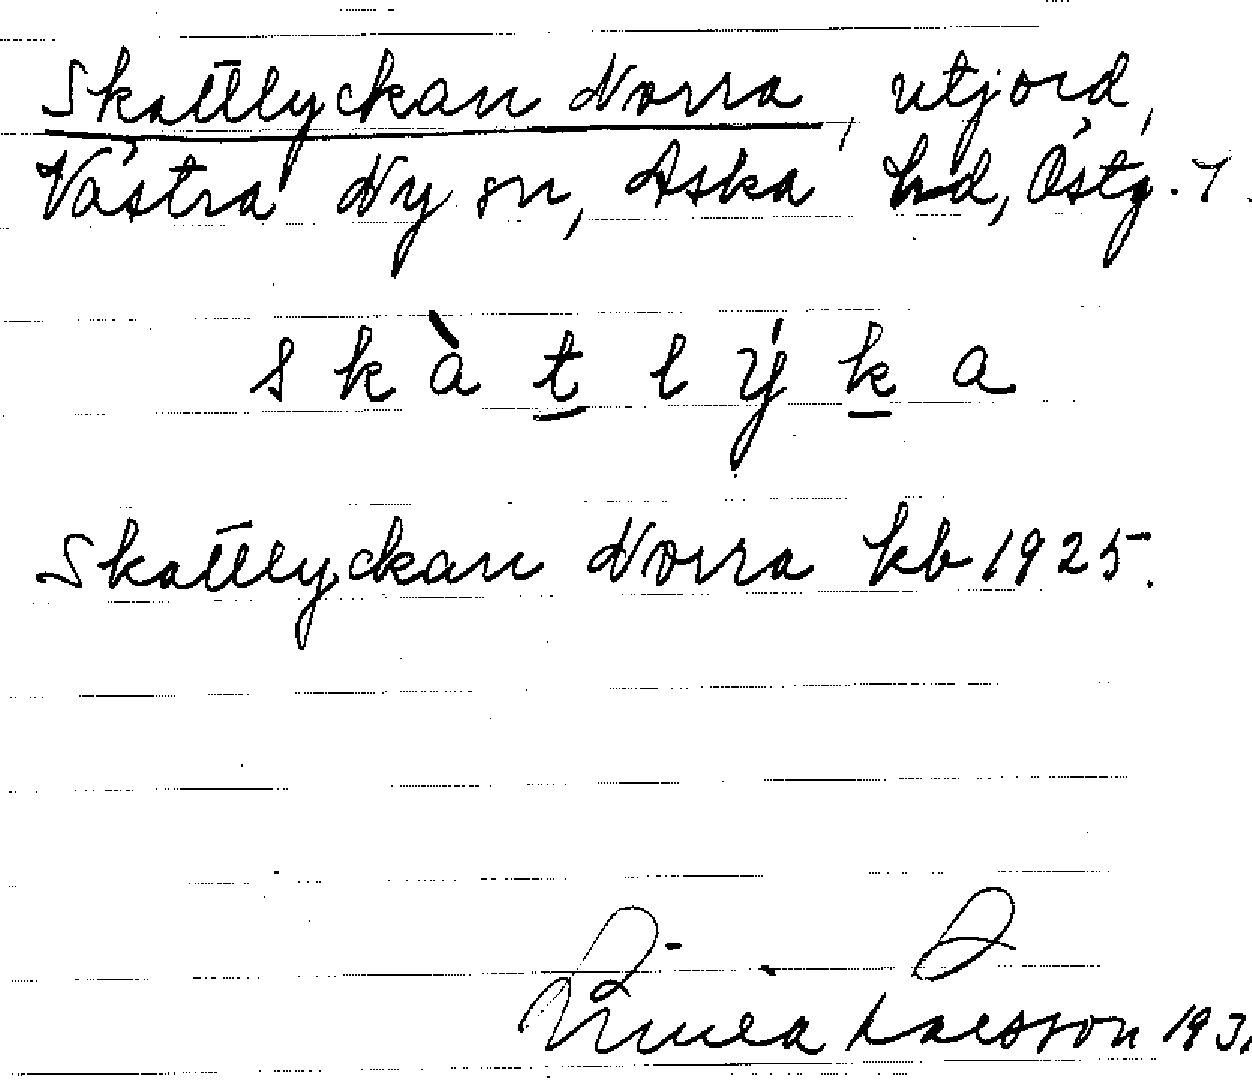 Skattlyckan Norra, utjord,
Västra Ny sn, Aska hd, Östg.
s k à t l ý k a
Skattlyckan Norra kb 1925.
Linnea Larsson 193